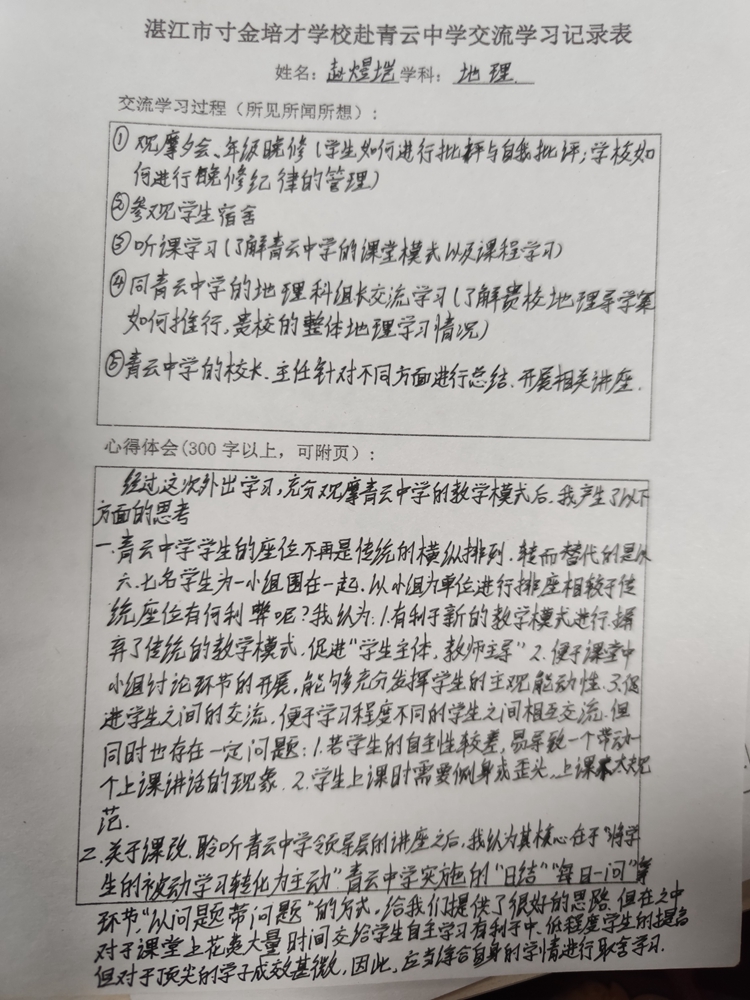 湛江市寸金培才学校赴青云中学交流学习记录表
姓名：赵煜垲 学科：地理
交流学习过程（所见所闻所想）：
①观摩夕会、年级晚修（学生如何进行批评与自我批评；学校如
何进行晚修纪律的管理）
②参观学生宿舍
③听课学习（了解青云中学的课堂模式以及课程学习）
④同青云中学的地理科组长交流学习（了解贵校地理导学案
如何推行、贵校的整体地理学习情况）
⑤青云中学的校长、主任针对不同方面进行总结、开展相关讲座.
心得体会(300字以上，可附页）：
经过这次外出学习，充分观摩青云中学的教学模式后，我产生了以下
方面的思考
一.青云中学学生的座位不再是传统的横纵排列，转而替代的是以
六、七名学生为一小组围在一起.以小组为单位进行排座相较于传
统座位有何利弊呢？我认为：1.有利于新的教学模式进行.摒
弃了传统的教学模式，促进“学生主体，教师主导”2.便于课堂中
小组讨论环节的开展，能够充分发挥学生的主观能动性.3.促
进学生之间的交流，便于学习程度不同的学生之间相互交流.但
同时也存在一定问题：1.若学生的自主性较差，易导致一个带动一
个上课讲话的现象.2.学生上课时需要侧身或歪头，上课不太规
范.
二.关于课改.聆听青云中学领导层的讲座之后，我认为其核心在于“将学
生的被动学习转化为主动”青云中学实施的“日结”“每日一问”等
环节，“以问题带问题”的方式，给我们提供了很好的思路.但在之中
对于课堂上花费大量时间交给学生自主学习有利于中、低程度学生的提高
但对于顶尖的学子成效甚微，因此，应当综合自身的学情进行取舍学习.